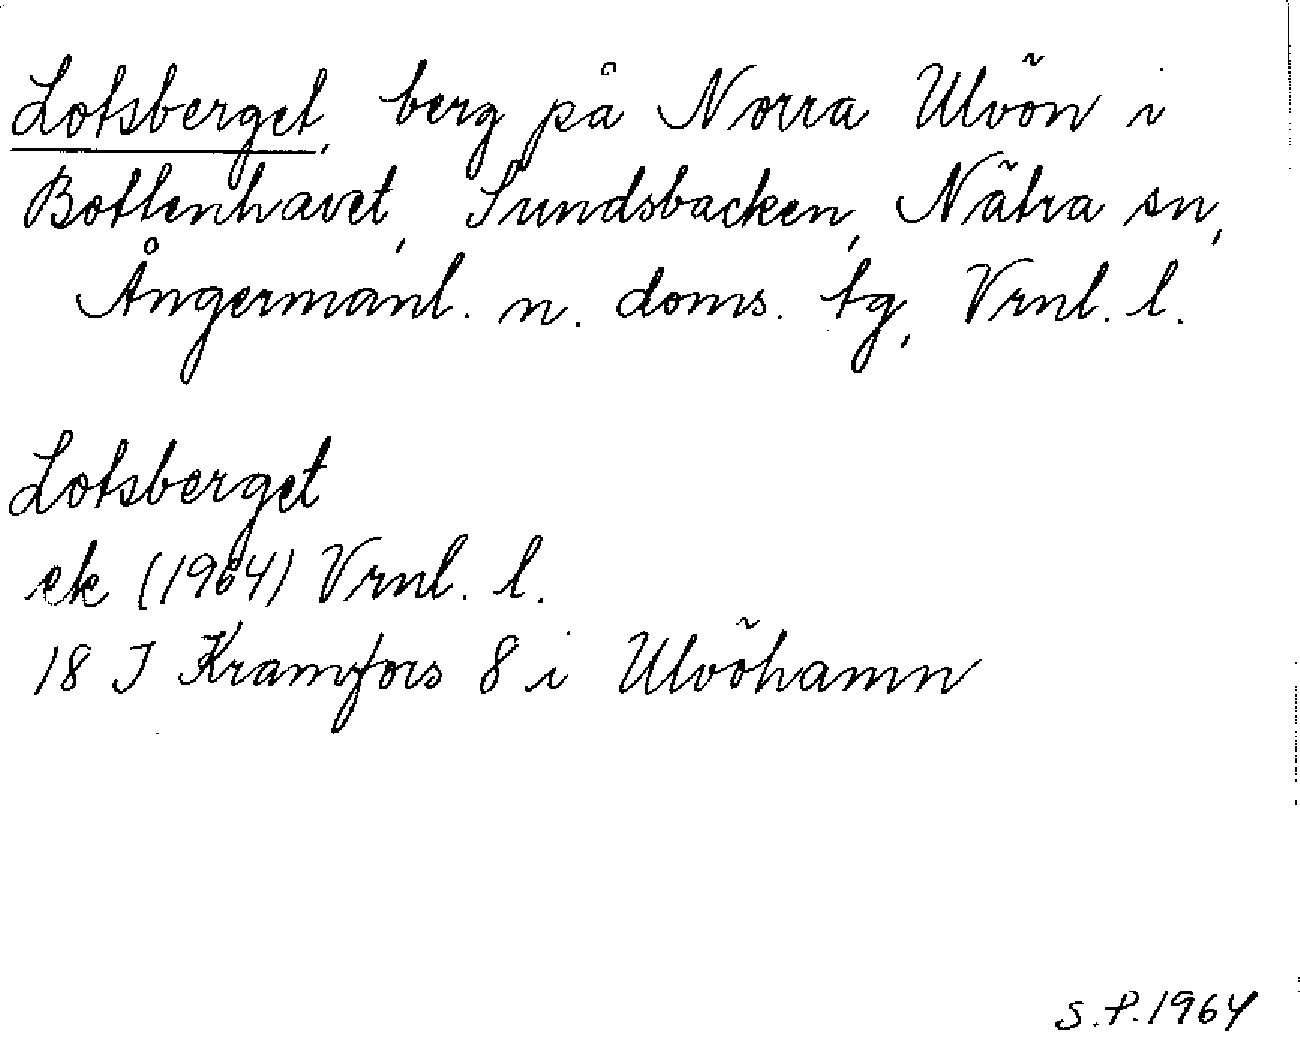 Lotsberget, berg på Norra Ulvön i
Bottenhavet, Sundsbacken, Nätra sn,
Ångermanl. n. doms. tg, Vrnl. l.
Lotsberget
ek (1964) Vrnl. l.
18 J Kramfors 8 i Ulvöhamn
S.P. 1964